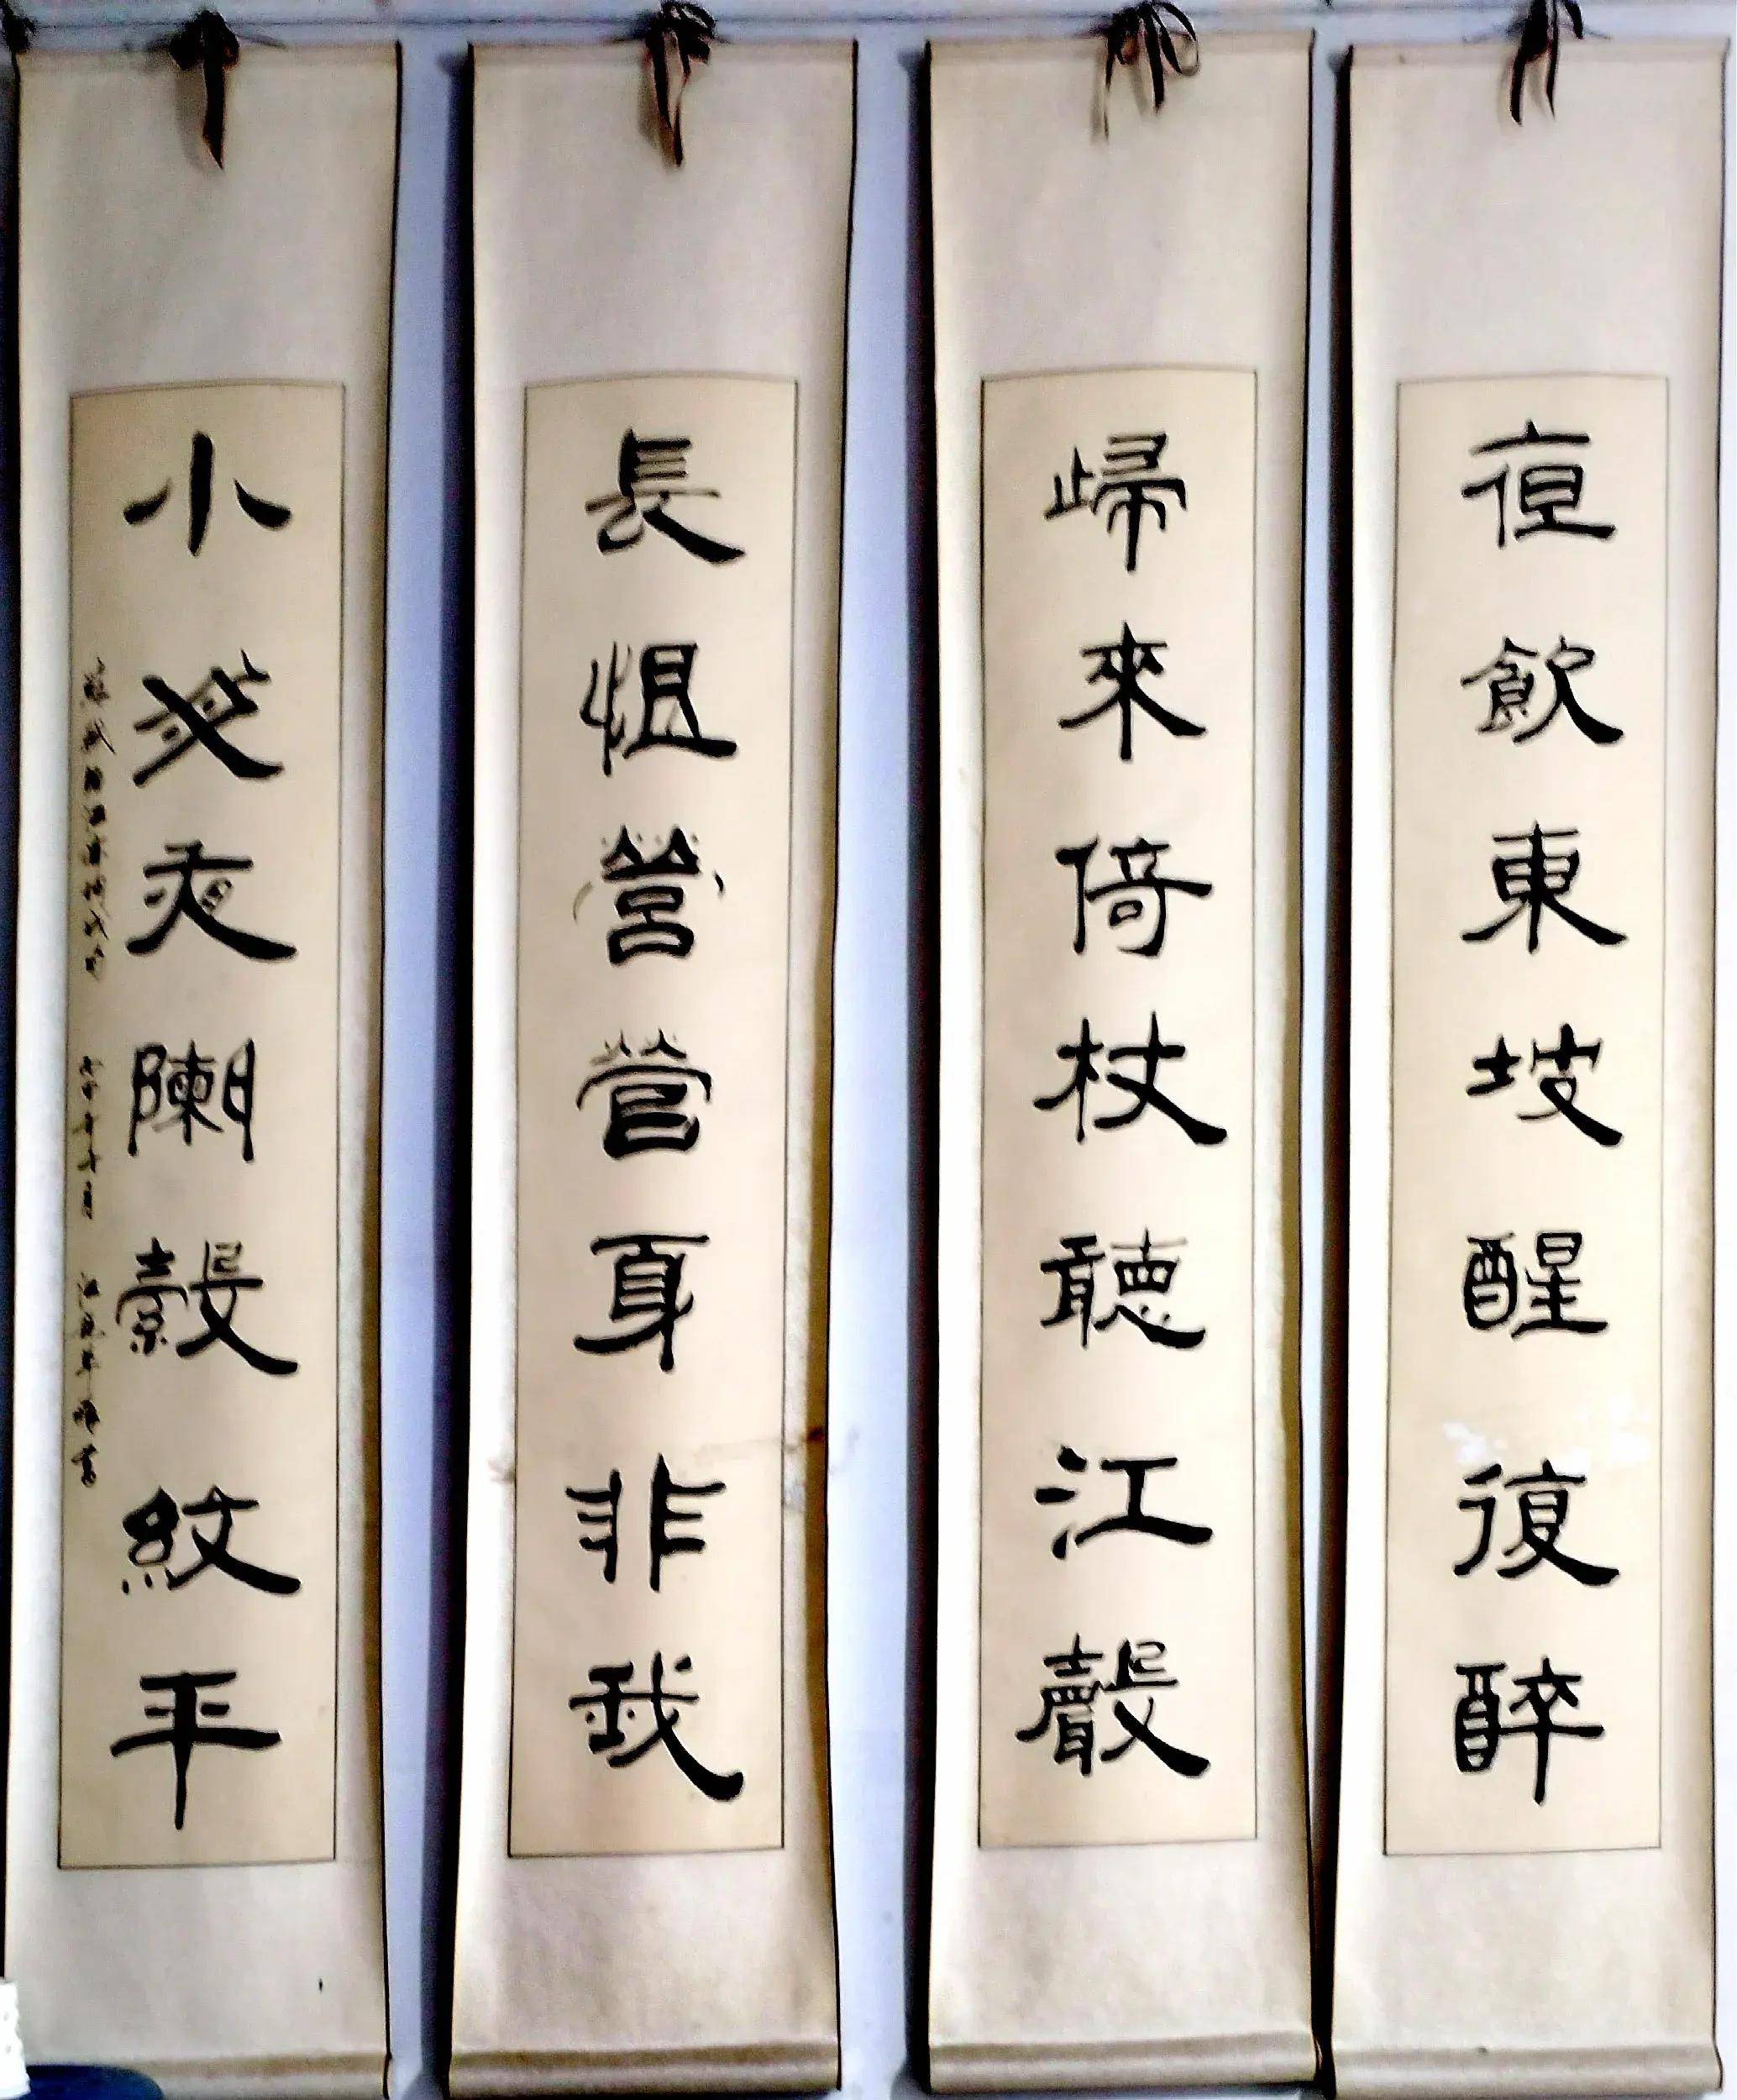 亱飲東坡醒復醉
歸來倚杖聽江聲
長恨營營身非我
小舟夜闌縠紋平